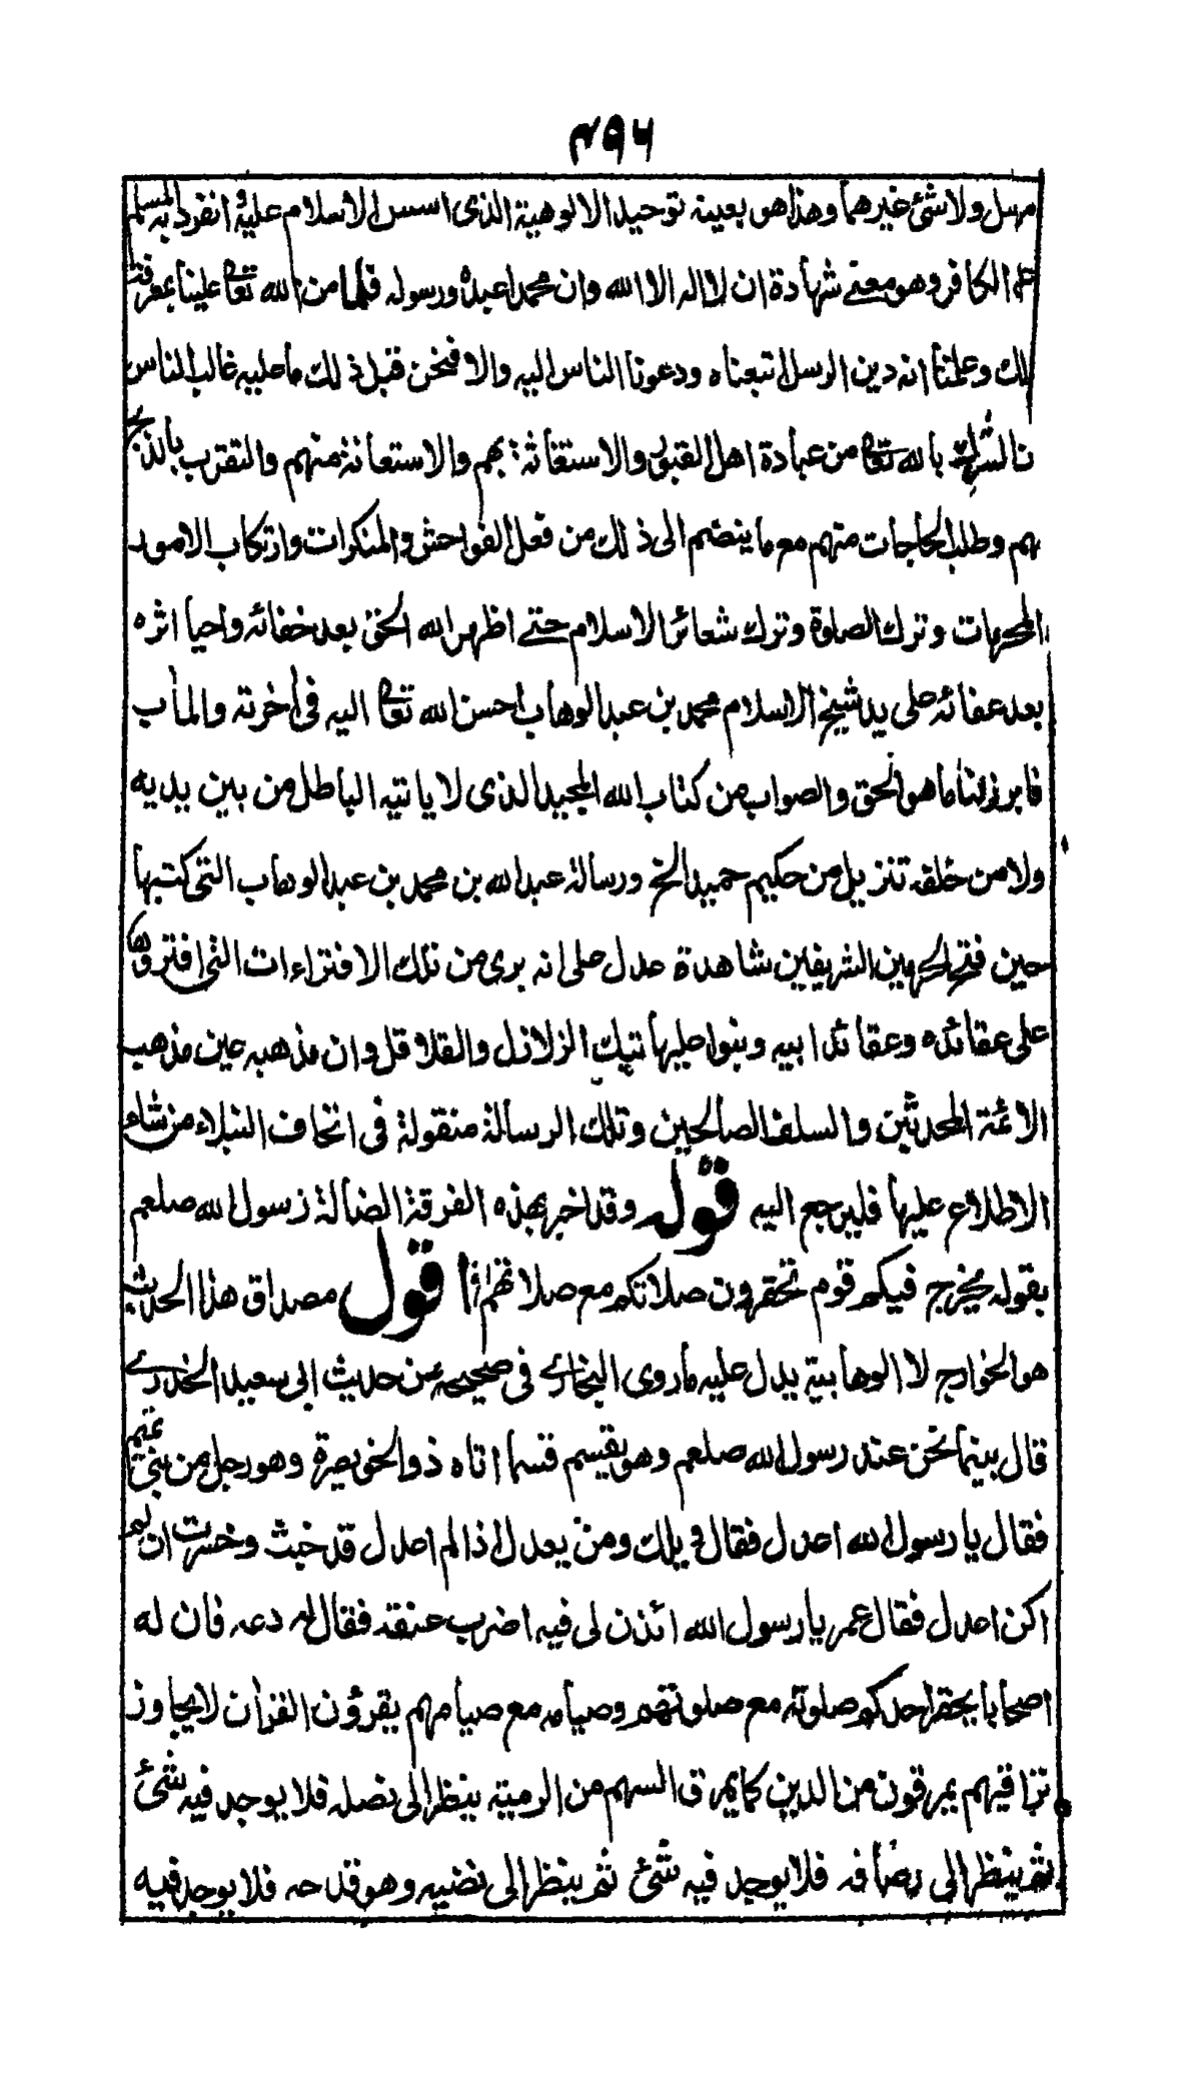 ۴۹۶
مرسل ولا شئ غيرهما وهذا هو بعينه توحيد الالوهية الذى اسس الاسلام عليه وانفرد به المسلم
عن الكافر وهو معنے شهادة ان لا اله الا الله وان محمدا عبده ورسوله فلما من الله تعالى علينا بمعرفة
ذلك وعلمنا انه دين الرسل اتبعناه ودعونا الناس اليه والا فنحن قبل ذلك ما عليه غالب الناس
من الشرك بالله تعالى من عبادة اهل القبور والاستغاثة بهم والاستعانة منهم والتقرب بالذبح
لهم وطلب الحاجات منهم مع ما ينضم الى ذلك من فعل الفواحش والمنكرات وارتكاب الامور
المحرمات وترك الصلوة وترك شعائر الاسلام حتے اظهر الله الحق بعد خفائه واحيا اثره
بعد عفائه على يد شيخ الاسلام محمد بن عبد الوهاب احسن الله تعالى اليه فى أخرته والمأب
فابرز لنا ما هو الحق والصواب من كتاب الله المجيد الذى لا يأتيه الباطل من بين يديه
ولا من خلفه تنزيل من حكيم حميد الخ ورسالة عبد الله بن محمد بن عبد الوهاب التى كتبها
حين فتح الحرمين الشريفين شاهدة عدل على انه برى من تلك الافتراءات التى افتروها
على عقائده وعقائد ابيه وبنوا عليها تيك الزلازل والقلاقل وان مذهبه عين مذهب
الائمة المحدثين والسلف الصالحين وتلك الرسالة منقولة فى اتحاف النبلاء من شاء
الاطلاع عليها فليرجع اليه قوله وقد اخبر بهذه الفرقة الضالة رسول الله صلعم
بقوله يخرج فيكم قوم تحقرون صلاتكم مع صلاتهم أقول مصداق هذا الحديث
هو الخوارج لا الوهابية يدل عليه ما روى البخارے فى صحيحه عن حديث ابى سعيد الخدرے
قال بينما نحن عند رسول الله صلعم وهو يقسم قسما اتاه ذو الخويصرة وهو رجل من بنى تميم
فقال يا رسول الله اعدل فقال ويلك ومن يعدل اذا لم اعدل قد خبت وخسرت ان لم
اكن اعدل فقال عمر يا رسول الله ائذن لى فيه اضرب عنقه فقال له دعه فان له
اصحابا يحقر احدكم صلوته مع صلوتهم وصيامه مع صيامهم يقرؤن القرأن لا يجاوز
تراقيهم يمرقون من الدين كما يمرق السهم من الرمية ينظر الى نصله فلا يوجد فيه شئ
ثم ينظر الى رصافه فلا يوجد فيه شئ ثم ينظر الى نضيه وهو قدحه فلا يوجد فيه